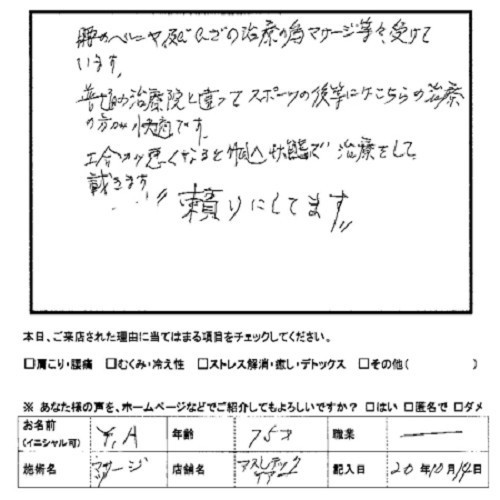 腰のヘルニヤ及びヒザの治療の為マッサージ等を受けて
います。
普通の治療院と違ってスポーツの後等にはこちらの治療
の方が快適です。
具合が悪くなると 状態で治療をして
戴きます
〃頼りにしてます〃
本日、ご来店された理由に当てはまる項目をチェックしてください。
□肩こり・腰痛 □むくみ・冷え性 □ストレス解消・癒し・デトックス □その他( )
※ あなた様の声を、ホームページなどでご紹介してもよろしいですか? □はい □匿名で □ダメ
お名前 (イニシャル可) Y.A 年齢 75才 職業 ―
施術名 マッサージ 店舗名 アスレチックケアー 記入日 20年10月14日